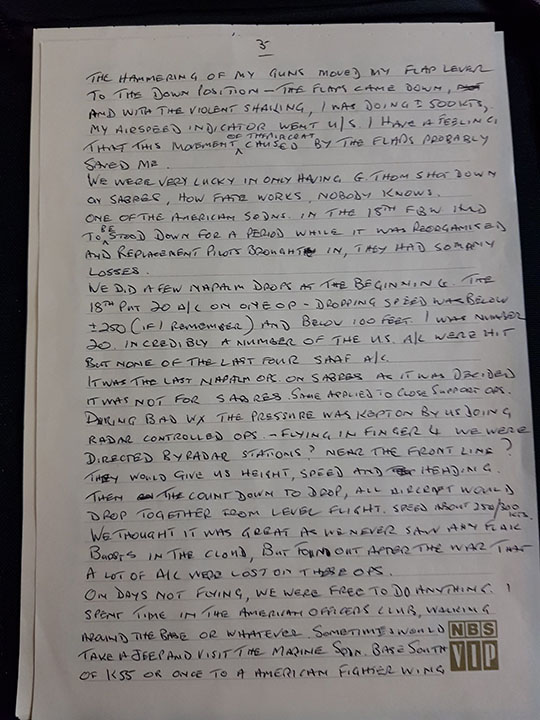 3
THE HAMMERING OF MY GUNS MOVED MY FLAP LEVER
TO THE DOWN POSITION – THE FLAPS CAME DOWN,
AND WITH THE VIOLENT SHAKING, I WAS DOING ± 500KTS,
MY AIRSPEED INDICATOR WENT U/S. I HAVE A FEELING
THAT THIS MOVEMENT OF THE AIRCRAFT CAUSED BY THE FLAPS PROBABLY
SAVED ME.
WE WERE VERY LUCKY IN ONLY HAVING G. THOM SHOT DOWN
ON SABRES, HOW FATE WORKS, NOBODY KNOWS.
ONE OF THE AMERICAN SQDNS. IN THE 18TH FBW HAD
TO BE STOOD DOWN FOR A PERIOD WHILE IT WAS REORGANISED
AND REPLACEMENT PILOTS BROUGHT IN, THEY HAD SO MANY
LOSSES.
WE DID A FEW NAPALM DROPS AT THE BEGINNING. THE
18TH PUT 20 A/C ON ONE OP – DROPPING SPEED WAS BELOW
±250 (IF I REMEMBER) AND BELOW 100 FEET. I WAS NUMBER
20. INCREDIBLY A NUMBER OF THE U.S. A/C WERE HIT
BUT NONE OF THE LAST FOUR SAAF A/C.
IT WAS THE LAST NAPALM OPS. ON SABRES AS IT WAS DECIDED
IT WAS NOT FOR SABRES. SAME APPLIED TO CLOSE SUPPORT OPS.
DURING BAD WX THE PRESSURE WAS KEPT ON BY US DOING
RADAR CONTROLLED OPS – FLYING IN FINGER 4 WE WERE
DIRECTED BY RADAR STATIONS? NEAR THE FRONT LINE?
THEY WOULD GIVE US HEIGHT, SPEED AND HEADING.
THEN THE COUNT DOWN TO DROP, ALL AIRCRAFT WOULD
DROP TOGETHER FROM LEVEL FLIGHT. SPEED ABOUT 250/300 KTS.
WE THOUGHT IT WAS GREAT AS WE NEVER SAW ANY FLAK
BURSTS IN THE CLOUD, BUT FOUND OUT AFTER THE WAR THAT
A LOT OF A/C WERE LOST ON THESE OPS.
ON DAYS NOT FLYING, WE WERE FREE TO DO ANYTHING. I
SPENT TIME IN THE AMERICAN OFFICERS CLUB, WALKING
AROUND THE BASE OR WHATEVER. SOMETIMES WOULD
TAKE A JEEP AND VISIT THE MARINE SQDN. BASE SOUTH
OF K55 OR ONCE TO A AMERICAN FIGHTER WING
NBS
VIP